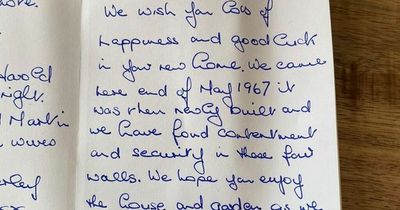 Harold
right.
Martin
wives
erley
We wish you lots of
happiness and good luck
in your new home. We came
here end of May 1967 it
was then newly built and
we have fond contentment
and security in these four
walls. We hope you enjoy
the house and garden as we